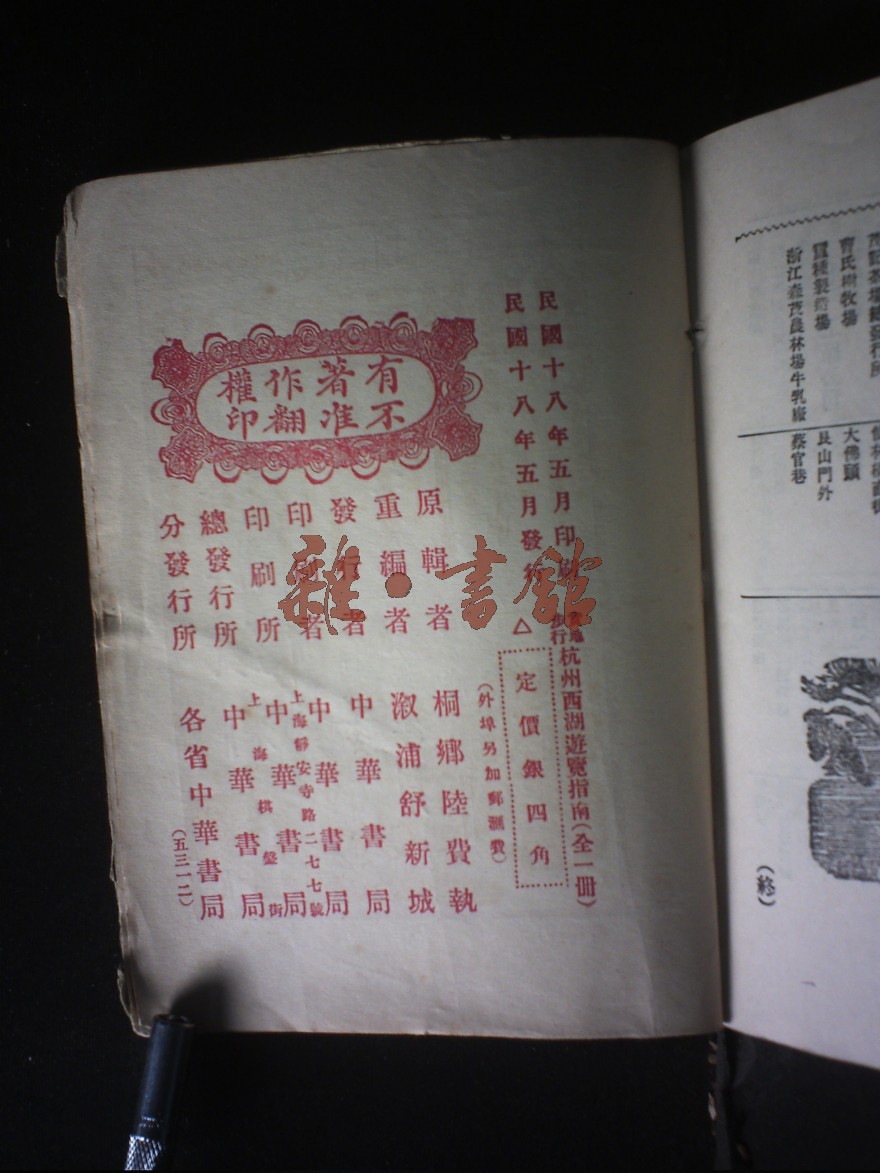 民國十八年五月印刷
民國十八年五月發行
杭州西湖遊覽指南(全一冊)
△
定價銀四角
(外埠另加郵滙費)
有著作權
不准翻印
原輯者 桐鄉陸費執
重編者 溆浦舒新城
發行者 中華書局
印刷者 中華書局
印刷所 中華書局
上海靜安寺路二七七號
總發行所 中華書局
上海棋盤街
分發行所 各省中華書局
(五三一二)
雜·書館
曹氏樹牧場
大佛頭
蠶種製造場
艮山門外
浙江森茂農林場牛乳廠
蔡官巷
(終)